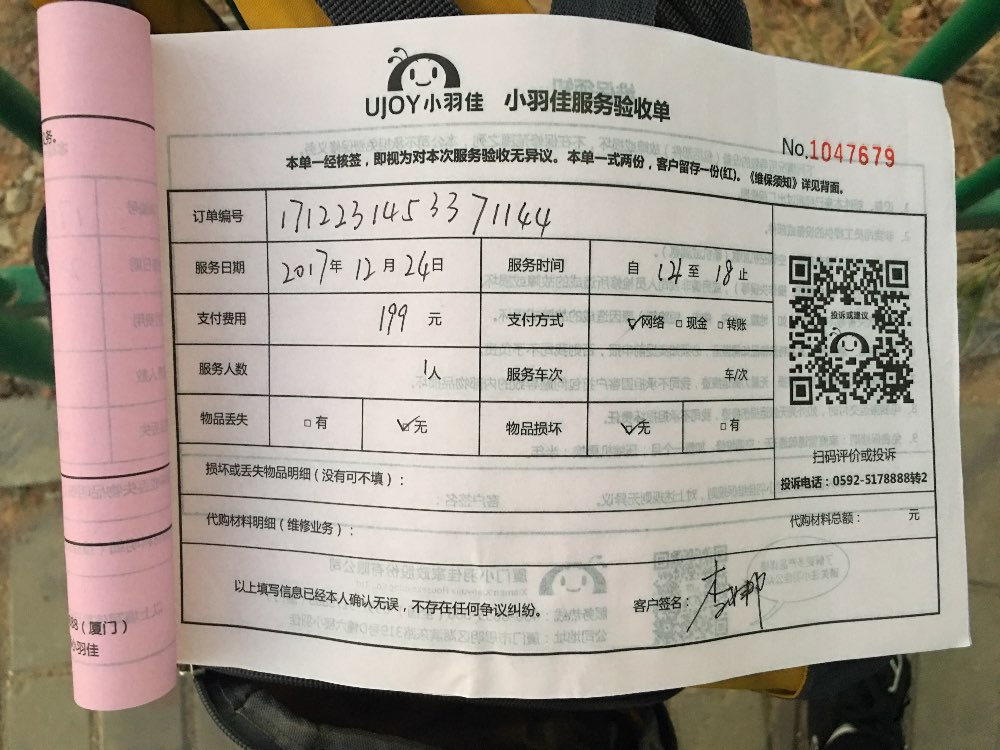 UJOY小羽佳 小羽佳服务验收单
No.1047679
本单一经核签，即视为对本次服务验收无异议。本单一式两份，客户留存一份(红)。《维保须知》详见背面。
订单编号 1712231453371144
服务日期 2017年 12月 24日 服务时间 自 14 至 18 止
支付费用 199 元 支付方式 ☑网络 □现金 □转账
服务人数 1人 服务车次 车/次
物品丢失 □有 ☑无 物品损坏 ☑无 □有
投诉或建议
扫码评价或投诉
投诉电话：0592-5178888转2
损坏或丢失物品明细（没有可不填）：
代购材料明细（维修业务）： 代购材料总额： 元
以上填写信息已经本人确认无误，不存在任何争议纠纷。 客户签名：
88（厦门）
小羽佳